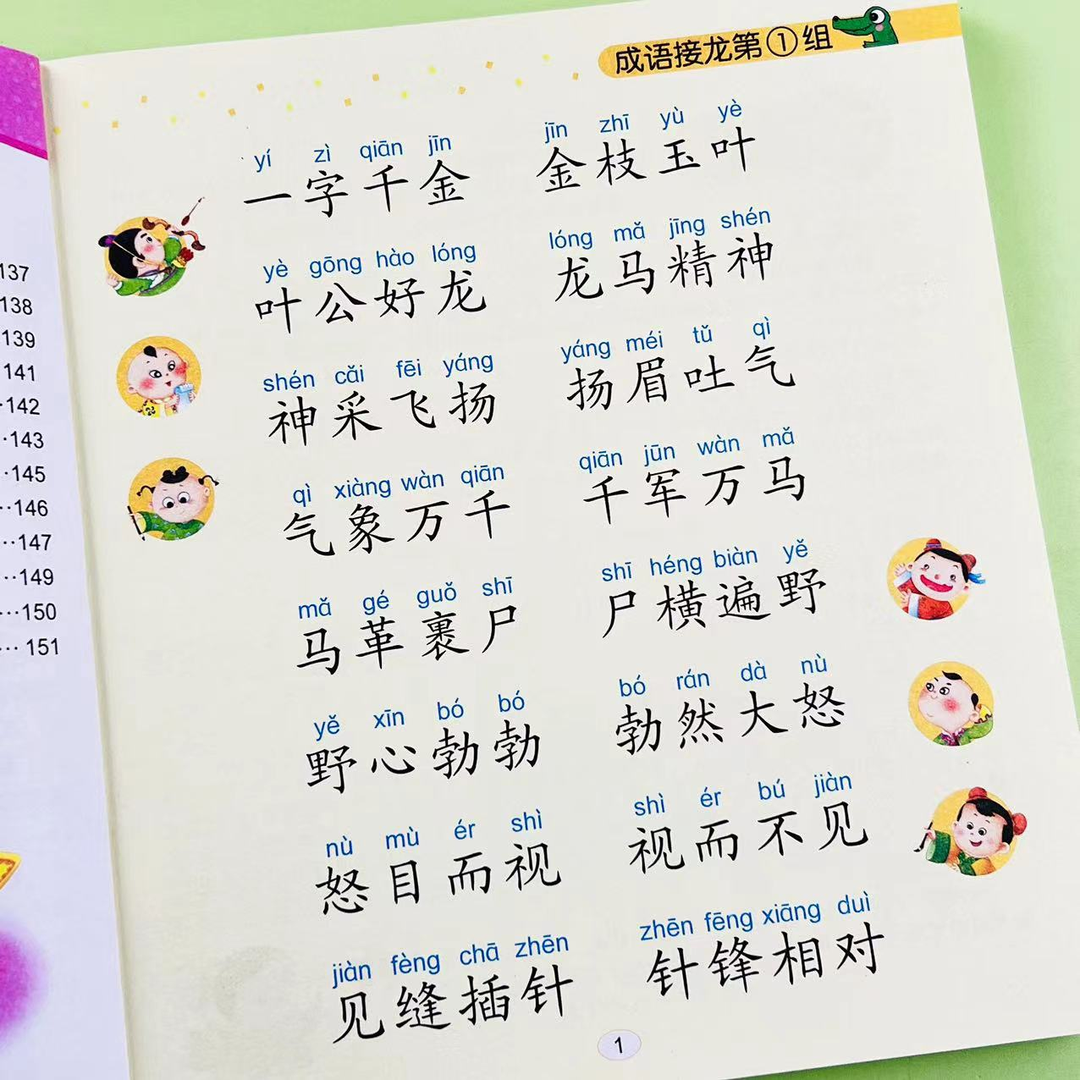 成语接龙第①组
yí zì qiān jīn jīn zhī yù yè
一字千金 金枝玉叶
yè gōng hào lóng lóng mǎ jīng shén
叶公好龙 龙马精神
shén cǎi fēi yáng yáng méi tǔ qì
神采飞扬 扬眉吐气
qì xiàng wàn qiān qiān jūn wàn mǎ
气象万千 千军万马
mǎ gé guǒ shī shī héng biàn yě
马革裹尸 尸横遍野
yě xīn bó bó bó rán dà nù
野心勃勃 勃然大怒
nù mù ér shì shì ér bú jiàn
怒目而视 视而不见
jiàn fèng chā zhēn zhēn fēng xiāng duì
见缝插针 针锋相对
1
137
138
139
141
··142
··143
··145
··146
··147
··149
···150
···151